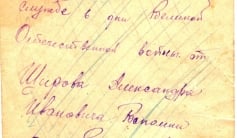 службе в дни Великой
Отечественной войны от
Широва Александра
Ивановича Вспомни